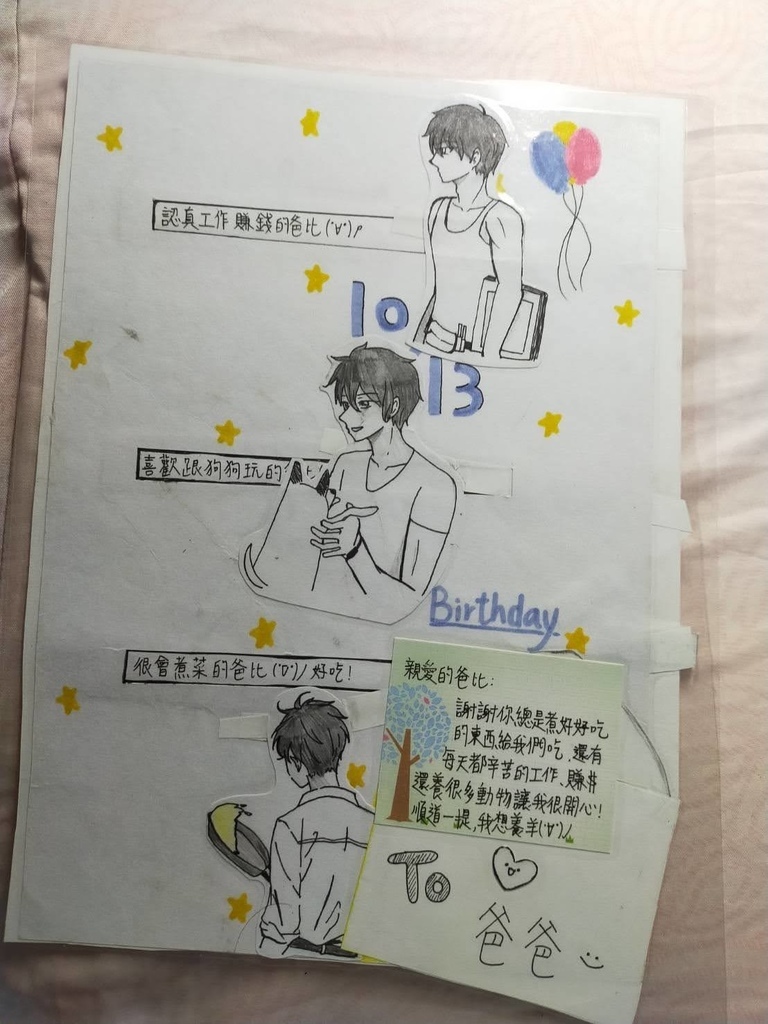 認真工作賺錢的爸比(˙∀˙)/
10
13
喜歡跟狗狗玩的
Birthday
很會煮菜的爸比(˙ᗜ˙)/ 好吃!
親愛的爸比:
謝謝你總是煮好好吃
的東西給我們吃,還有
每天都辛苦的工作、賺
還養很多動物讓我很開心!
順道一提,我想養羊(˙∀˙)/
To
爸爸